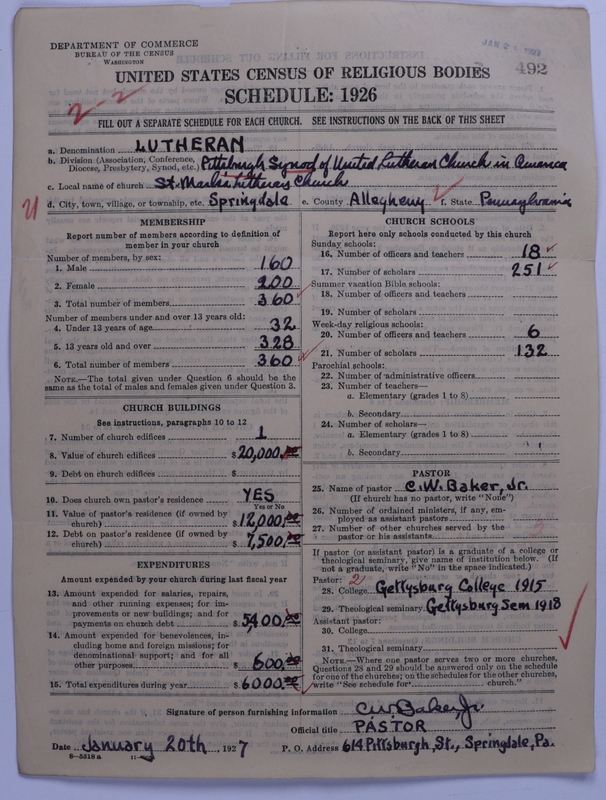 DEPARTMENT OF COMMERCE
BUREAU OF THE CENSUS
WASHINGTON
492
UNITED STATES CENSUS OF RELIGIOUS BODIES
SCHEDULE: 1926
2-2
FILL OUT A SEPARATE SCHEDULE FOR EACH CHURCH. SEE INSTRUCTIONS ON THE BACK OF THIS SHEET
a. Denomination LUTHERAN
b. Division (Association, Conference, Diocese, Presbytery, Synod, etc.) Pittsburgh Synod of United Lutheran Church in America
c. Local name of church St. Mark's Lutheran Church
d. City, town, village, or township, etc. Springdale e. County Allegheny f. State Pennsylvania
MEMBERSHIP
Report number of members according to definition of
member in your church
Number of members, by sex:
1. Male 160
2. Female 200
3. Total number of members 360
Number of members under and over 13 years old:
4. Under 13 years of age 32
5. 13 years old and over 328
6. Total number of members 360
NOTE.—The total given under Question 6 should be
same as the total of males and females given under Question 3.
CHURCH BUILDINGS
See instructions, paragraphs 10 to 12
7. Number of church edifices 1
8. Value of church edifices $20,000.00
9. Debt on church edifices $
10. Does church own pastor's residence YES
Yes or No
11. Value of pastor's residence (if owned by
church) $12,000.00
12. Debt on pastor's residence (if owned by
church) $7,500.00
EXPENDITURES
Amount expended by your church during last fiscal year
13. Amount expended for salaries, repairs,
and other running expenses; for im-
provements or new buildings; and for
payments on church debt $5,400.00
14. Amount expended for benevolences, in-
cluding home and foreign missions; for
denominational support; and for all
other purposes $600.00
15. Total expenditures during year $6000.00
CHURCH SCHOOLS
Report here only schools conducted by this church
Sunday schools:
16. Number of officers and teachers 18
17. Number of scholars 251
Summer vacation Bible schools:
18. Number of officers and teachers
19. Number of scholars
Week-day religious schools:
20. Number of officers and teachers 6
21. Number of scholars 132
Parochial schools:
22. Number of administrative officers
23. Number of teachers—
a. Elementary (grades 1 to 8)
b. Secondary
24. Number of scholars—
a. Elementary (grades 1 to 8)
b. Secondary
PASTOR
25. Name of pastor C.W. Baker, Jr.
(If church has no pastor, write "None")
26. Number of ordained ministers, if any, em-
ployed as assistant pastors
27. Number of other churches served by the
pastor or his assistants
If pastor (or assistant pastor) is a graduate of a college or
theological seminary, give name of institution below. (If
not a graduate, write "No" in the space indicated.)
Pastor: 2
28. College Gettysburg College 1915
29. Theological seminary Gettysburg Sem 1918
Assistant pastor:
30. College
31. Theological seminary
NOTE.—Where one pastor serves two or more churches,
Questions 28 and 29 should be answered only on the schedule
for one of the churches; on the schedules for the other churches,
write "See schedule for church."
Signature of person furnishing information C W Baker, Jr.
Official title PASTOR
Date January 20th, 1927 P. O. Address 614 Pittsburgh, St., Springdale, Pa.
8—5318 a